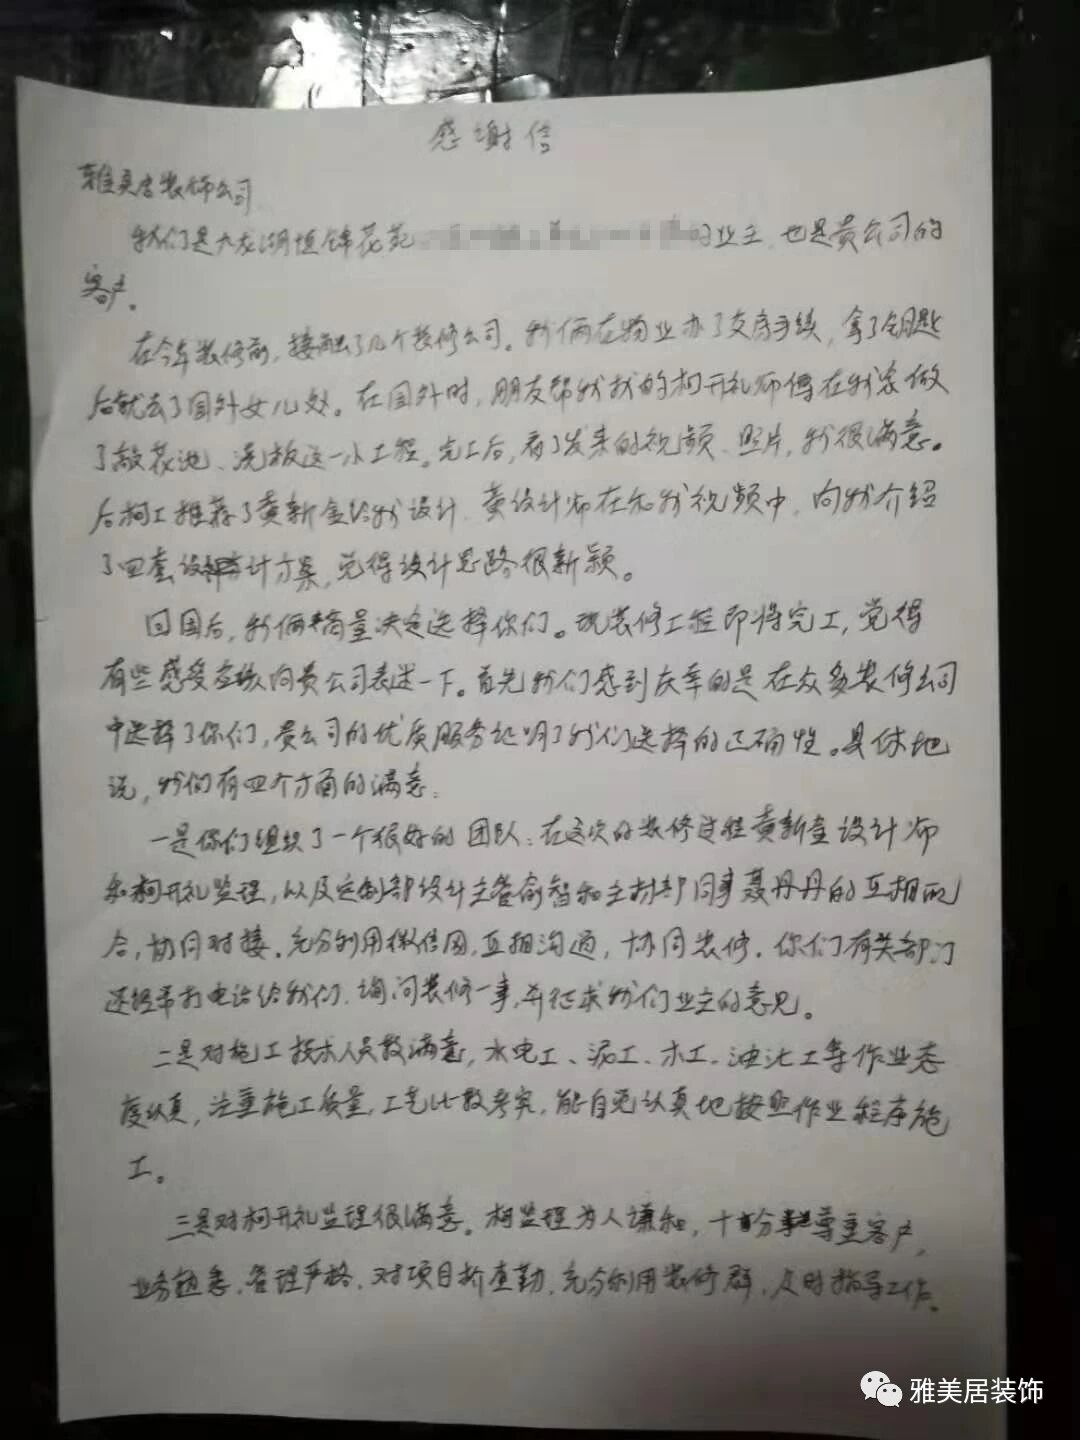 感谢信
雅美居装饰公司
我们是九龙湖恒锦花苑 的业主,也是贵公司的
客户。
在今年装修前,接触了几个装修公司。我俩在物业办了交房手续,拿了钥匙
后就去了国外女儿处。在国外时,朋友帮我找的柯开礼师傅在我家做
了敲花池、浇板这一小工程。完工后,看了发来的视频、照片,我很满意。
后柯工推荐了黄新金给我设计,黄设计师在和我视频中,向我介绍
了四套设计方案,觉得设计思路很新颖。
回国后,我俩商量决定选择你们。现装修工程即将完工,觉得
有些感受应该向贵公司表述一下。首先我们感到庆幸的是在众多装修公司
中选择了你们,贵公司的优质服务证明了我们选择的正确性。具体地
说,我们有四个方面的满意:
一是你们组织了一个很好的团队:在这次的装修过程黄新金设计师
和柯开礼监理,以及定制部设计主管俞智和主材部同事聂丹丹的互相配
合,协同对接。充分利用微信图,互相沟通,协同装修。你们有关部门
还经常打电话给我们,询问装修一事,并征求我们业主的意见。
二是对施工技术人员较满意,水电工、泥工、木工、油漆工等作业态
度认真,注重施工质量,工艺比较考究,能自觉认真地按照作业程序施
工。
三是对柯开礼监理很满意。柯监理为人谦和,十分尊重客户,
业务熟悉,管理严格,对项目检查勤,充分利用装修群,及时指导工作。
雅美居装饰